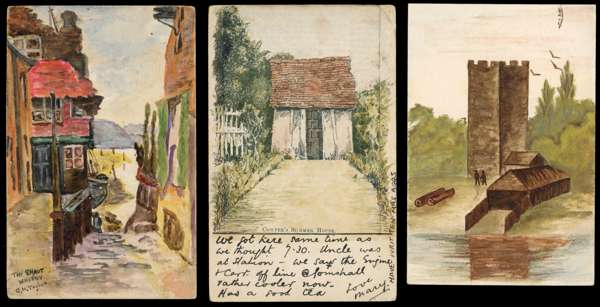 THE GHAUT
WHITBY
COWPER'S SUMMER HOUSE
We got here same time as
we thought 7-30. Uncle was
at Station — we saw the Engine
& carr. off line @ Gomshall
rather cooler now—
Had a good tea
Love
Mary.